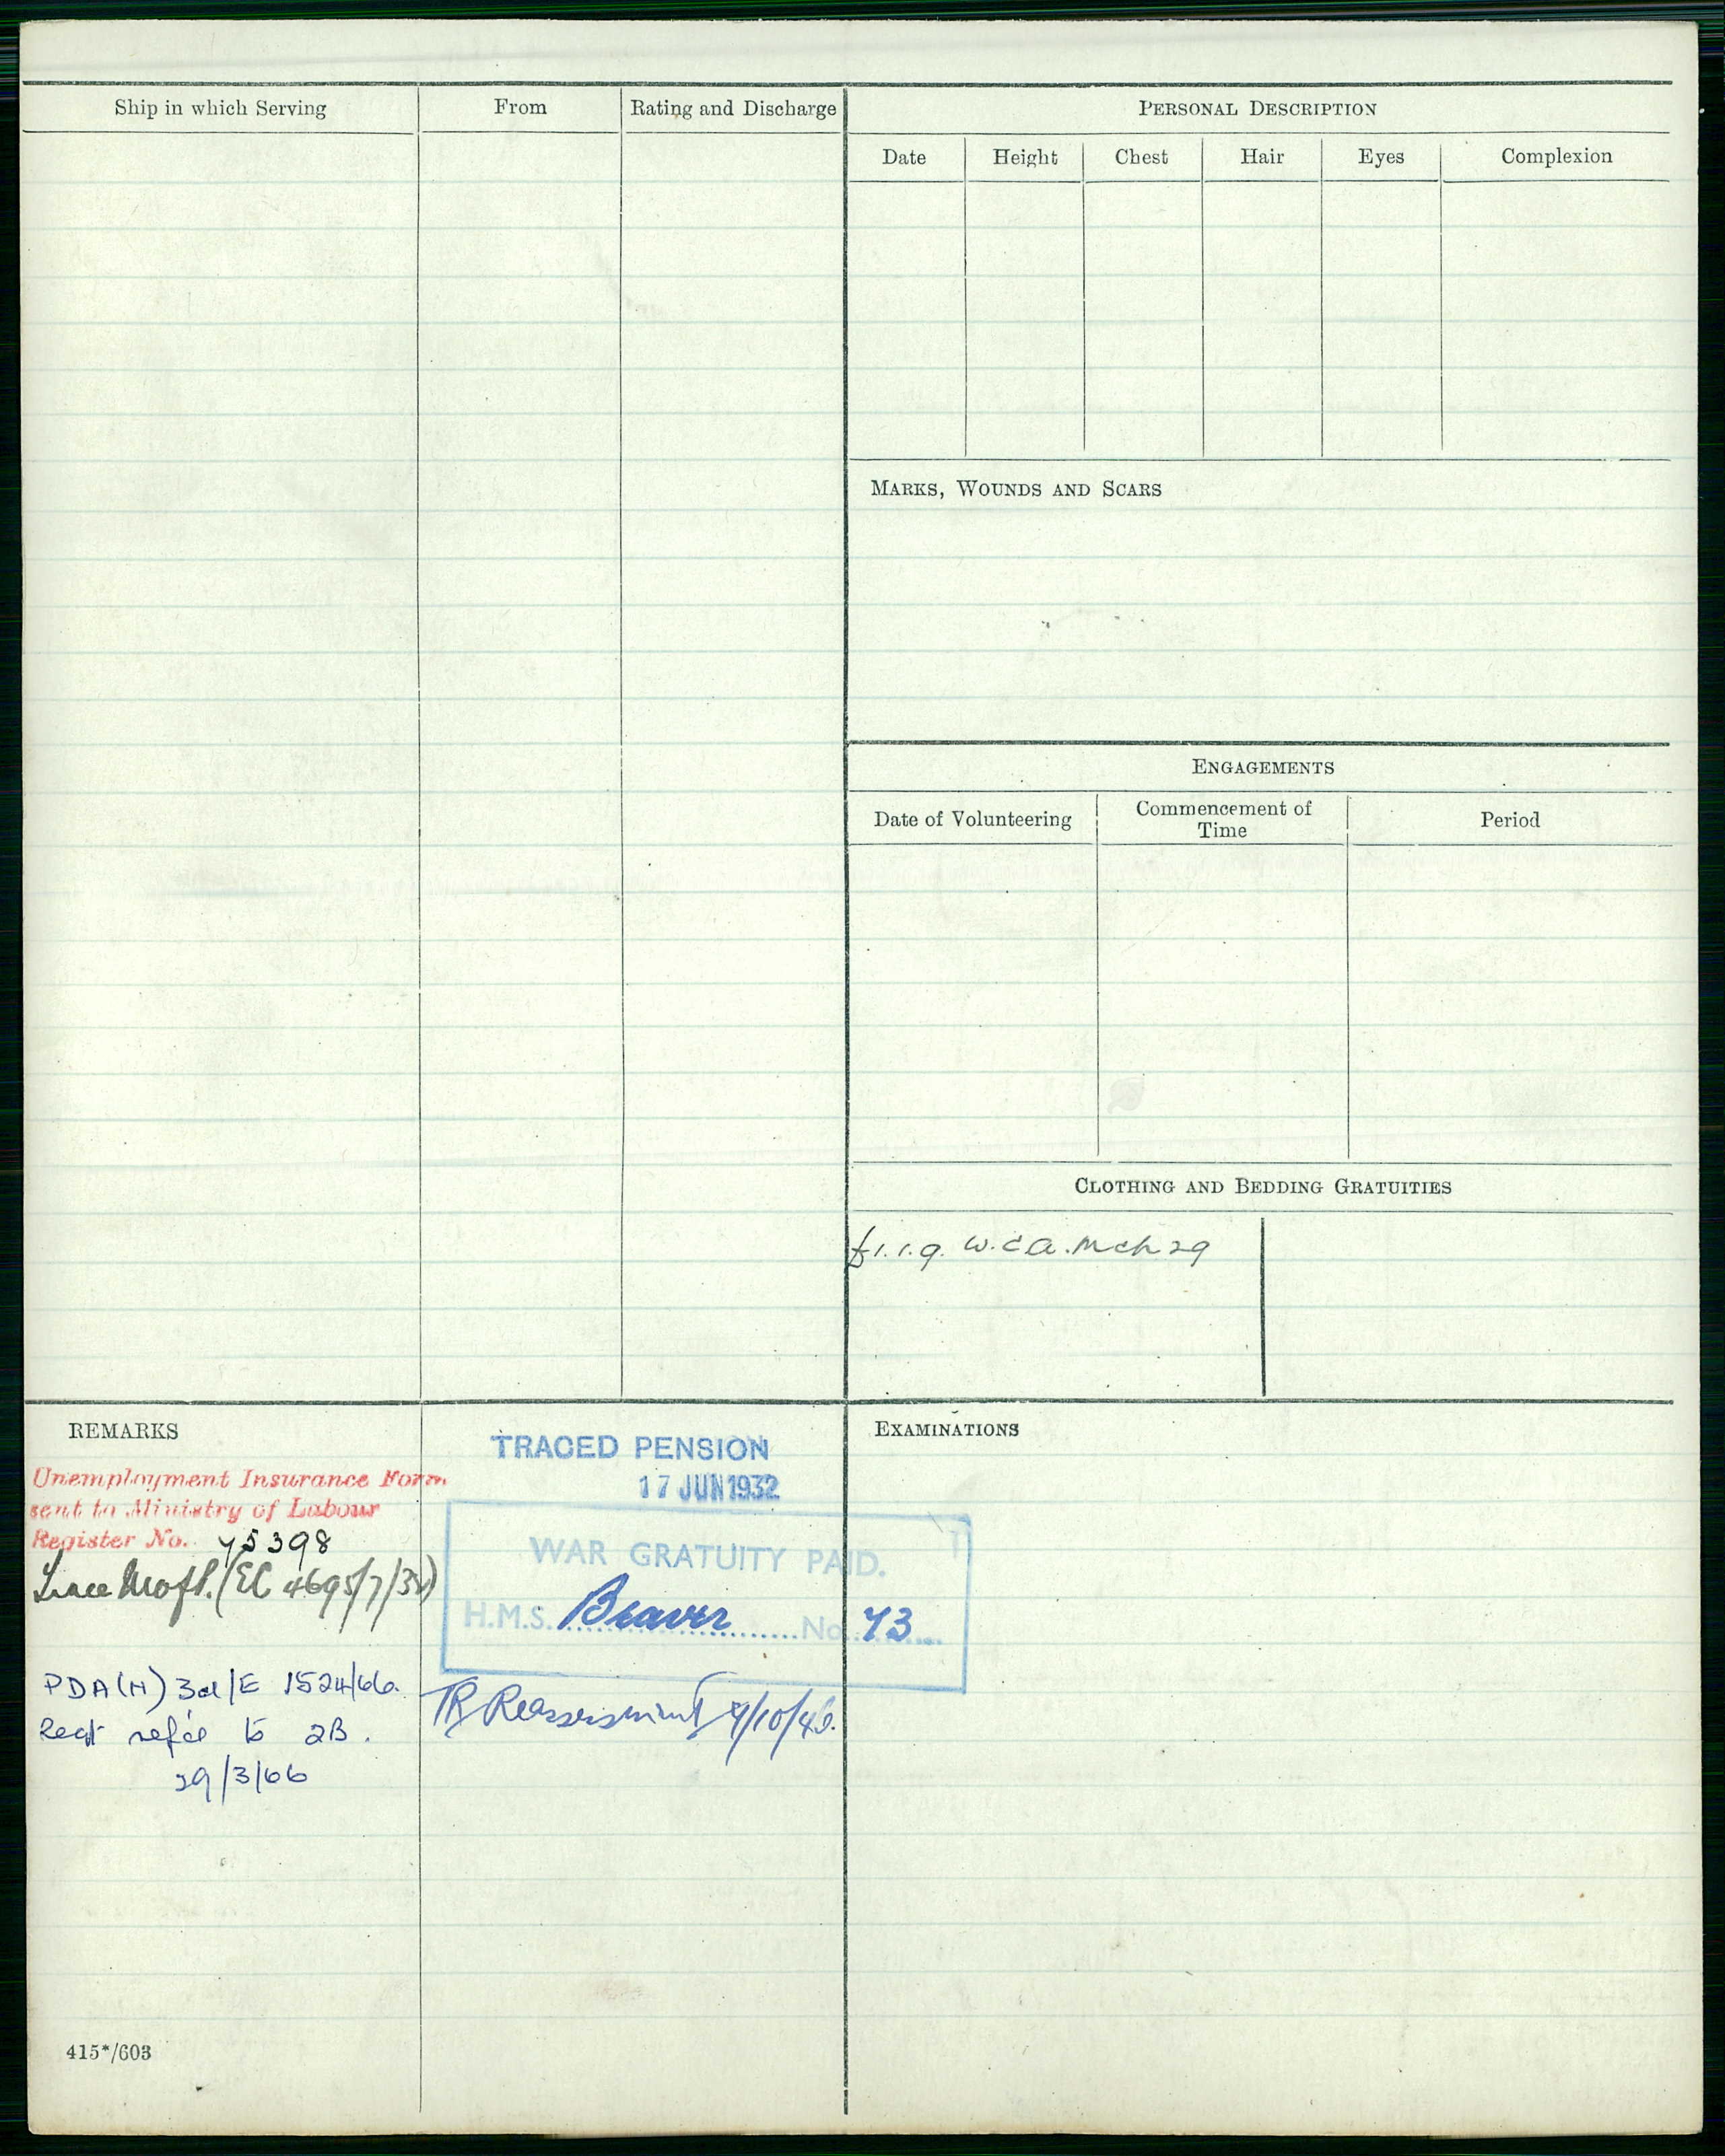 Ship in which Serving
From
Rating and Discharge
PERSONAL DESCRIPTION
Date
Height
Chest
Hair
Eyes
Complexion
MARKS, WOUNDS AND SCARS
ENGAGEMENTS
Date of Volunteering
Commencement of
Time
Period
CLOTHING AND BEDDING GRATUITIES
£1.1.9. W.C.A. Mch 29
REMARKS
Unemployment Insurance Form
sent to Ministry of Labour
Register No. 45398
(EC 4695/7/32)
PDA(N) 3d/E 1524/66.
to 2B.
29/3/66
TRACED PENSION
17 JUN 1932
WAR GRATUITY PAID.
H.M.S. Beaver No. 43
Reassessment
EXAMINATIONS
415*/603